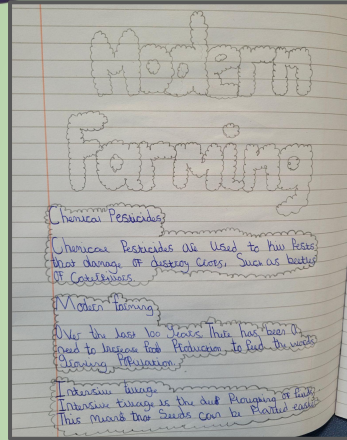 Modern
Farming
Chemical Pesticides
Chemical Pesticides are Used to kill Pests
that damage or destroy crops, Such as beetles
or Caterpillars.
Modern Farming
Over the last 100 years There has been a
need to Increase Food Production, to feed the worlds
Growing Population.
Intensive tillage
Intensive tillage is the Ploughing of
This means that Seeds can be Planted easily